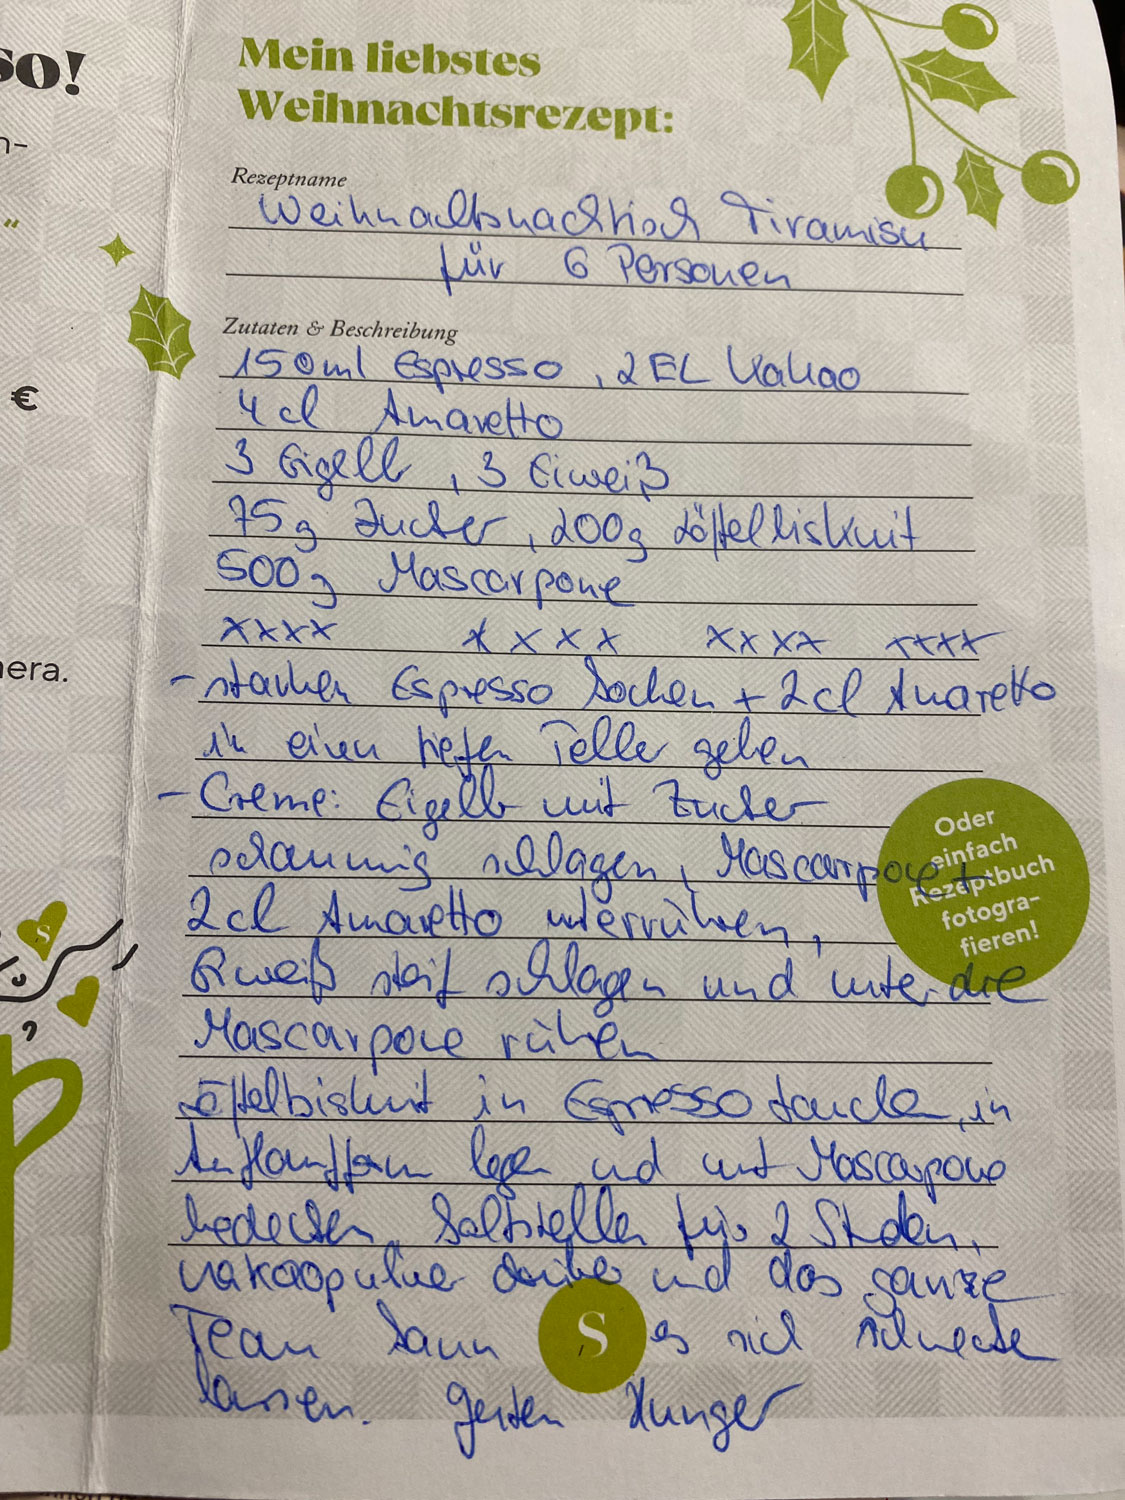 so!
n-
“
€
nera.
Mein liebstes
Weihnachtsrezept:
Rezeptname
Weihnachtsnachtisch Tiramisu
für 6 Personen
Zutaten & Beschreibung
150ml Espresso, 2EL Kakao
4 cl Amaretto
3 Eigelb, 3 Eiweiß
75g Zucker, 200g Löffelbiskuit
500g Mascarpone
xxxx xxxx xxxx xxxx
- starken Espresso kochen + 2cl Amaretto
in einen tiefen Teller geben
- Creme: Eigelb mit Zucker
schaumig schlagen, Mascarpone +
2cl Amaretto unterrühren,
Eiweiß steif schlagen und unter die
Mascarpone rühren
Löffelbiskuit in Espresso tauchen, in
Auflaufform legen und mit Mascarpone
bedecken. kaltstellen für 2 Stunden,
Kakaopulver darüber und das ganze
Team kann es sich schmecken
lassen. Guten Hunger
Oder
einfach
Rezeptbuch
fotogra-
fieren!
S
S